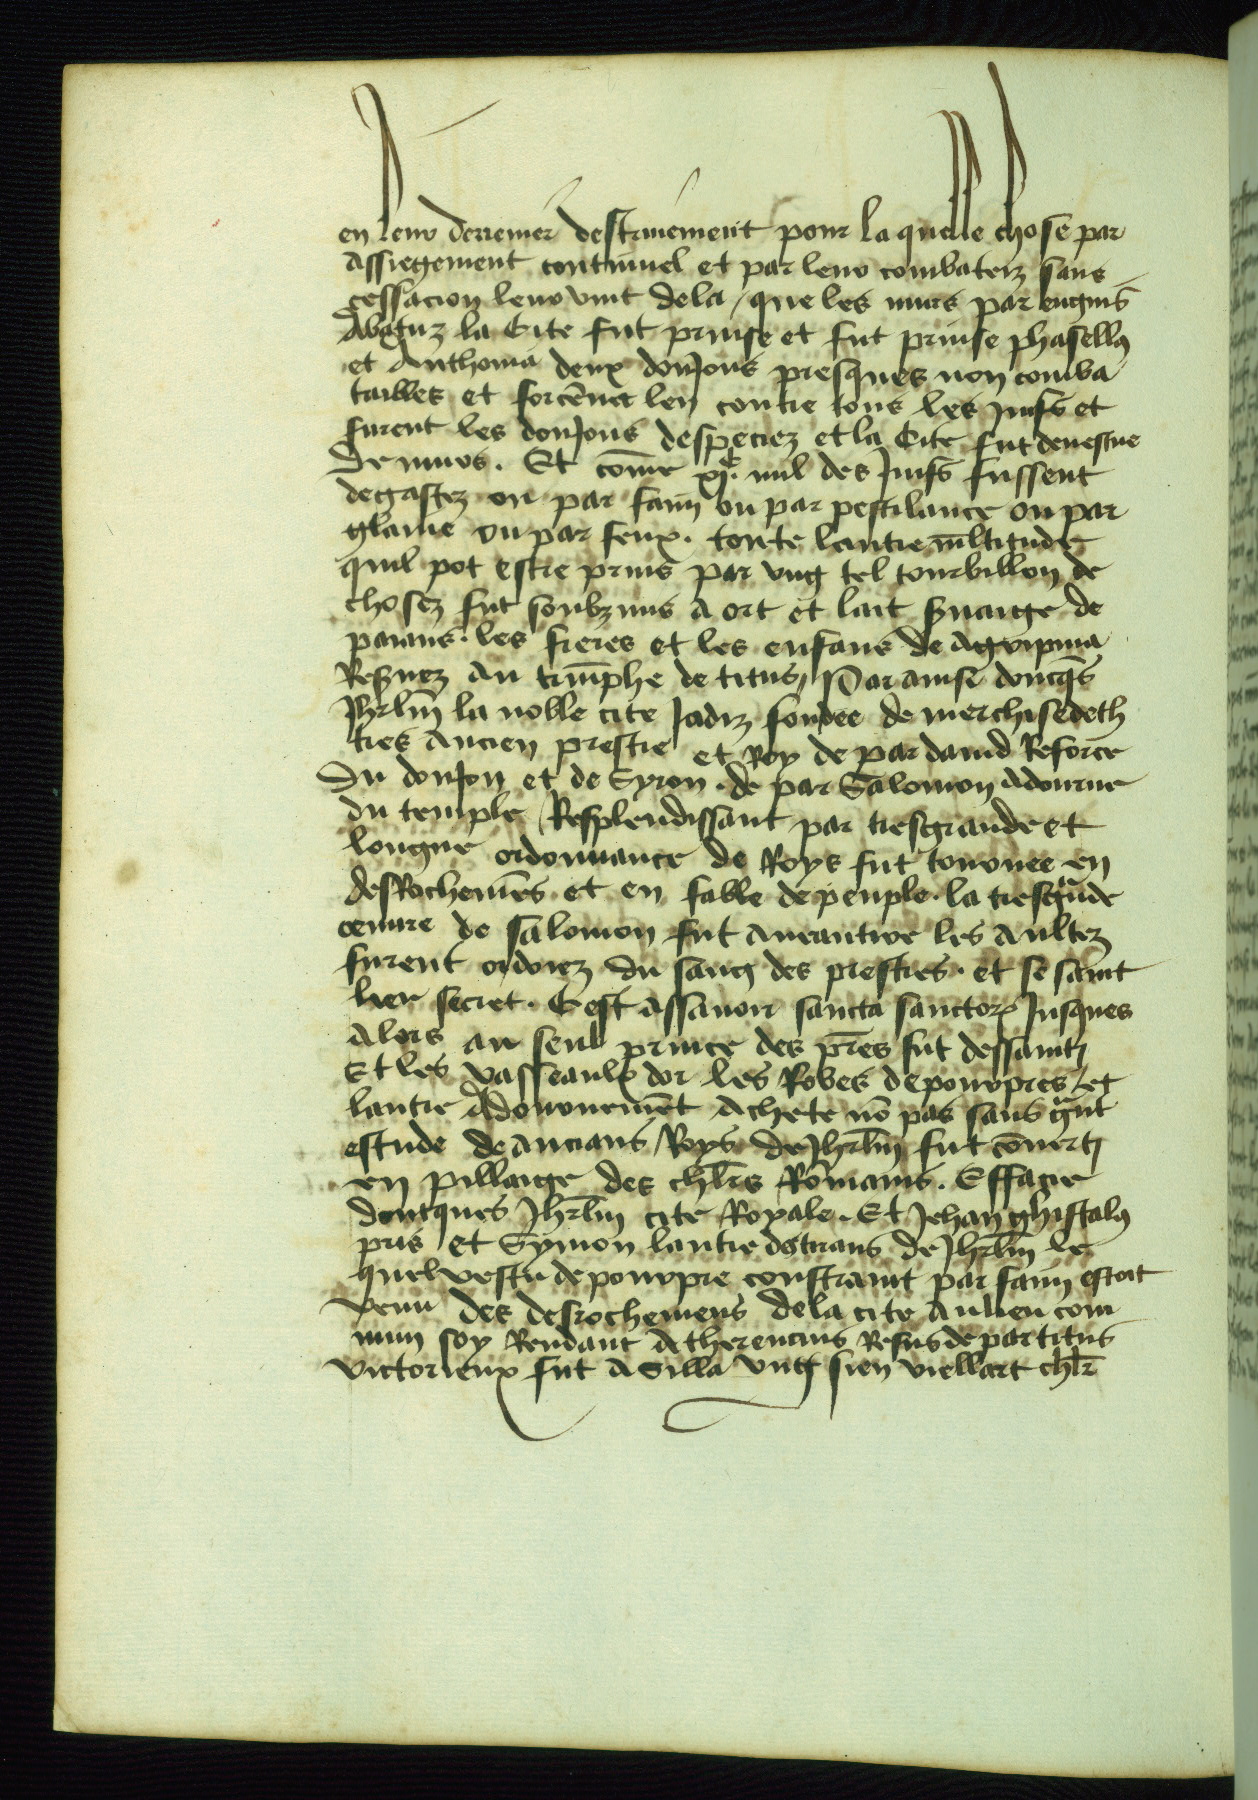 en leur derrenier destruiement pour la quelle chose par
assiegement continuel et par leur combaterz sans
cessacion leur vint dela / que les murs par engins
Abatuz la Cite fut prinse et fut prinse phasellꝰ
et Anthonia deux donJons presques non comba
tables et forcēnct len contre tous les Juifs et
furent les donJons despeciez et la Cite fut denestue
De murs . Et cōme xjᶜ. mil des Juifs fussent
degastez ou par faim ou par pestilance ou par
glaiue ou par feux . toute lautre mltitude
quil pot estre prins par vng tel tourbillon de
chosez fut soubzmis a ort et lait seruaige de
paians . les freres et les enfans de Agripina
Resnez au trīūphe de titus / Par ainsi doncqs
Jhrlm̄ la noble cite Jadiz fondee de merchisedeth
tres Ancien prestre et Roy de par dauid Reforce
Du donJon et de Syron . de par Salomon Adourne
du temple / Resplendissant par tresgrande et
longue ordonnance de Roys fut tournee en
desRochemēs et en fable de peuple . la tresgrāde
oeuure de salomon fut Aneantire les Aultez
furent ordoiez du sang des prestres . et se saint
lier secret . Cest assauoir sancta sanctorꝝ Jusques
Alors au seul prince des p̄res fut dessainti
Et les vasseaulx dor les Robes de pourpres / et
lautre Adournemēt Achete nō pas sans grāt
estude de Ancians / Roys de Jhrlm̄ fut cōuerti
en pillaige des chlr̄s Rommains . Effacie
doncques Jhrlm̄ cite Royale . Et Jehan ghistalꝰ
pris et Symon lautre destrans de Jhrlm̄ le
quel vestu de pourpre constraint par faim estoit
venu des desrochemens dela cite Au lieu com
mun soy Rendant A therencius Refus de par titus
victorieux fut A Silla vng sien viellart chlr̄